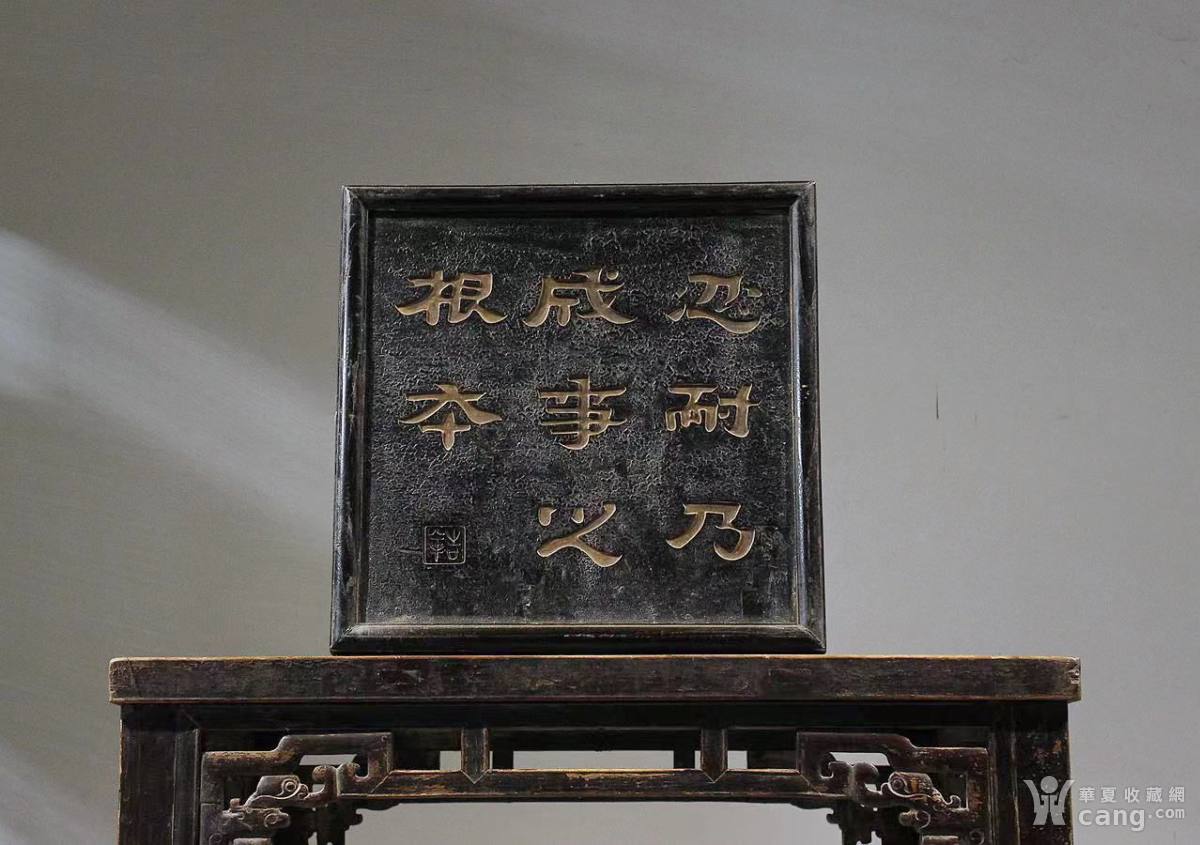 忍耐乃
成事之
根本
華夏收藏網
cang.com